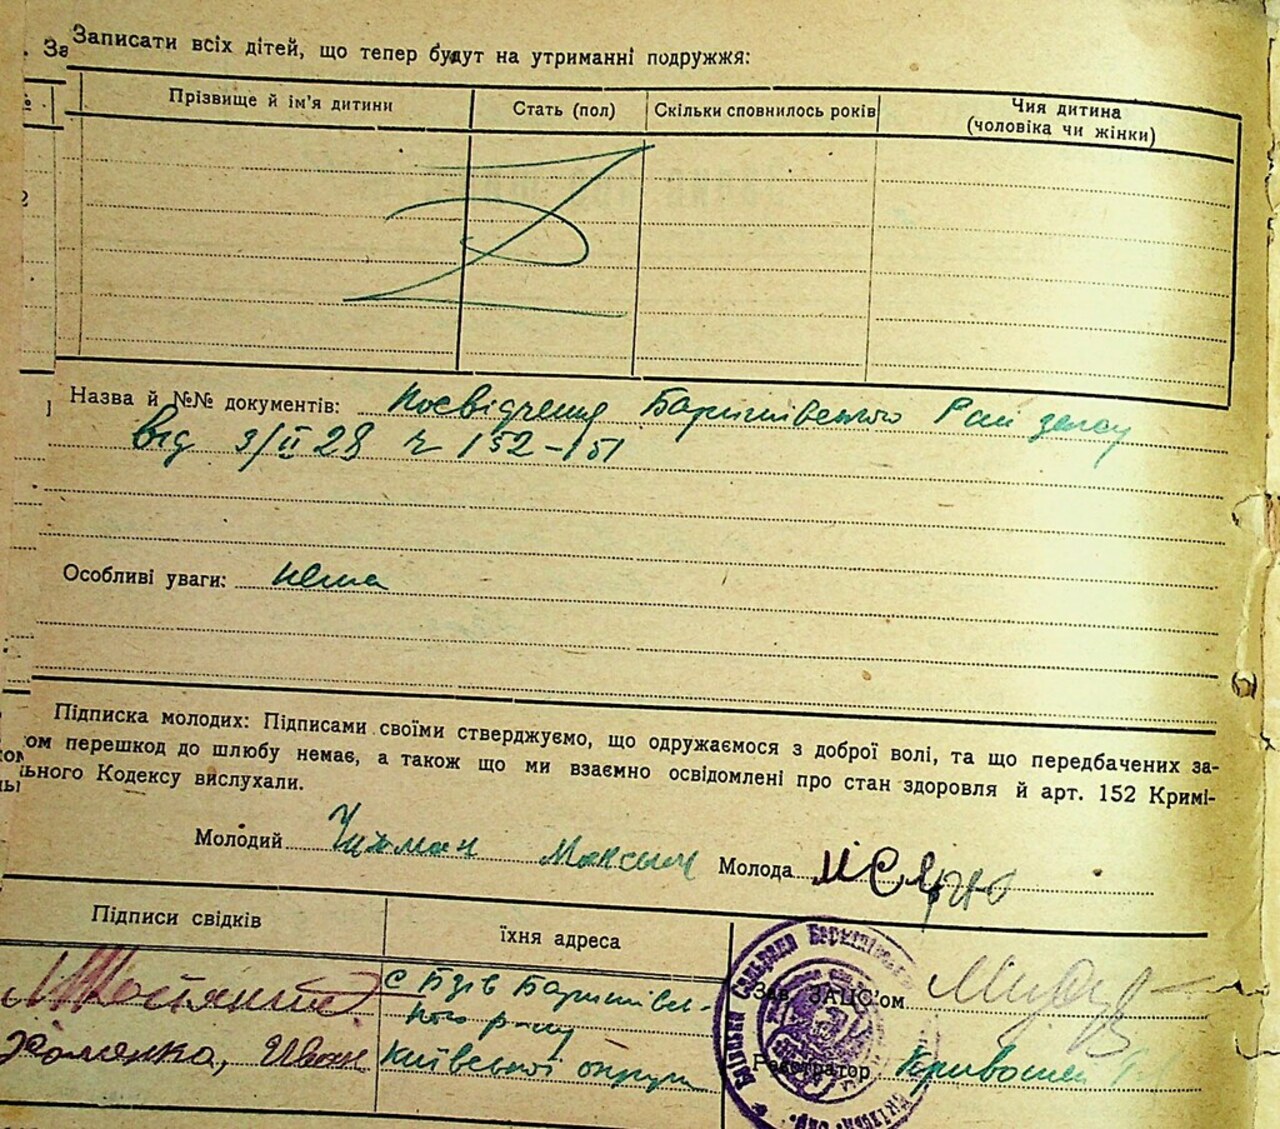 Записати всіх дітей, що тепер будут на утриманні подружжя:
Прізвище й ім'я дитини
Стать (пол)
Скільки сповнилось років
Чия дитина
(чоловіка чи жінки)
Назва й №№ документів: Посвідчення Баришівського Рай загсу
від 9/II 28 ч 152-151
Особливі уваги: нема
Підписка молодих: Підписами своїми стверджуємо, що одружаємося з доброї волі, та що передбачених за-
ом перешкод до шлюбу немає, а також що ми взаємно освідомлені про стан здоровля й арт. 152 Кримі-
ього Кодексу вислухали.
Молодий Максим Молода
Підписи свідків
їхня адреса
с Бзів Баришівсь-
кого р-ну
Хоменко, Иван Київської округи
Зав. ЗАЦС'ом
Реєстратор